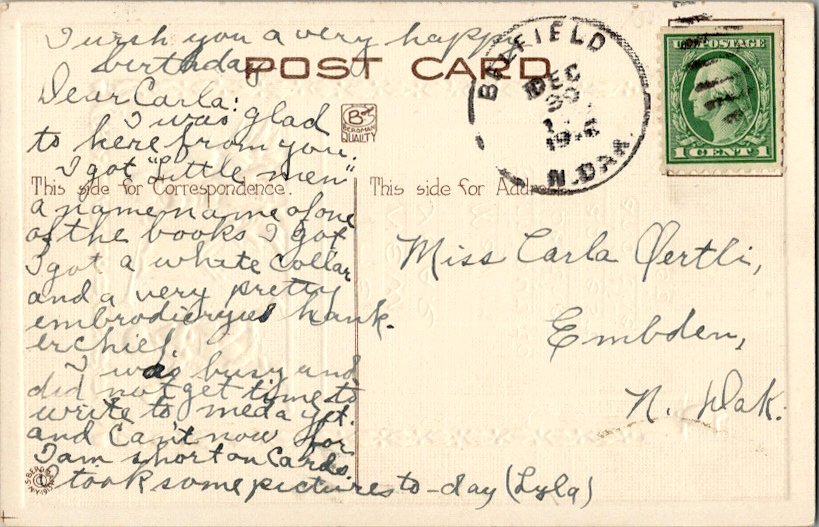 I wish you a very happy
birthday
POST CARD
Dear Carla:
I was glad
to here from you.
I got "Little men"
This side for Correspondence.
a name name of one
of the books I got
I got a white collar
and a very pretty
embrodieryed hank-
erchief.
I was busy and
did not get time to
write to meda yet.
and can't now for
I am short on cards.
took some pictures to-day (Lyla)
B
BERGMAN
QUALITY
BELFIELD
DEC
30
N. DAK.
U.S. POSTAGE
1 CENT 1
This side for Address
Miss Carla Oertli,
Embden,
N. Dak.